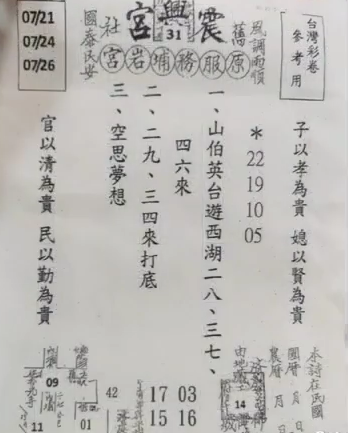 07/21
07/24
07/26
國泰民安
社
宮興震
31
舊
風調雨順
台灣彩卷
參考用
宮岩埔務服原
子以孝為貴 媳以賢為貴
* 22 19 10 05
一、山伯英台遊西湖二八、三七、
四六來
二、二九、三四來打底
三、空思夢想
官以清為貴 民以勤為貴
本詩在民國
國曆 月 日
農曆 月 日
14
03
16
17
15
42
01
09
11